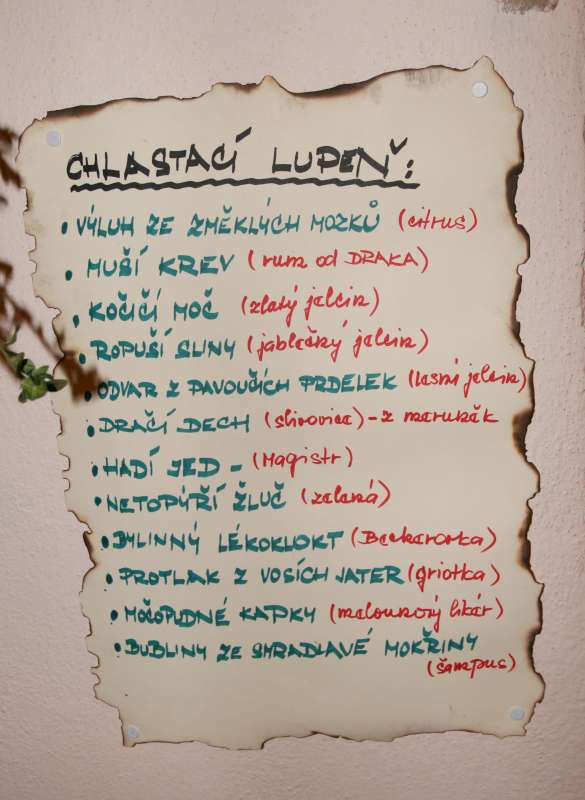 CHLASTACÍ LUPEŇ:
• VÝLUH ZE ZMĚKLÝCH MOZKŮ (citrus)
• MUŠÍ KREV (rum od DRAKA)
• KOČIČÍ MOČ (zlatý jelcin)
• ROPUŠÍ SLINY (jablečný jelcin)
• ODVAR Z PAVOUČÍCH PRDELEK (lesní jelcin)
• DRAČÍ DECH (slivovice) - z meruněk
• HADÍ JED - (Magistr)
• NETOPÝŘÍ ŽLUČ (zelená)
• BYLINNÝ LÉKOKLOKT (Becherovka)
• PROTLAK Z VOSÍCH JATER (griotka)
• MOČOPUDNÉ KAPKY (melounový likér)
• BUBLINY ZE SMRADLAVÉ MOKŘINY
(šampus)